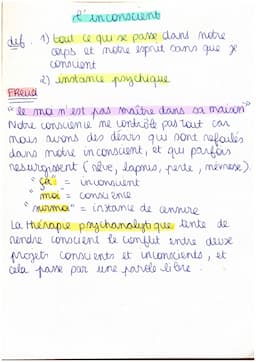 L'inconscient
def. 1) tout ce qui se passe dans notre
corps et notre esprit sans que je
conscient
2) instance psychique
FREUD
"le moi n'est pas maître dans sa maison"
Notre conscience ne contrôle pas tout car
nous avons des désirs qui sont refoulés
dans notre inconscient, et qui parfois
resurgissent (rêve, lapsus, perte, névrose).
"ça" = inconscient
"moi" = conscience
"surmoi" = instance de censure
La thérapie psychanalytique tente de
rendre conscient le conflit entre deux
projets conscients et inconscients, et
cela passe par une parole libre.